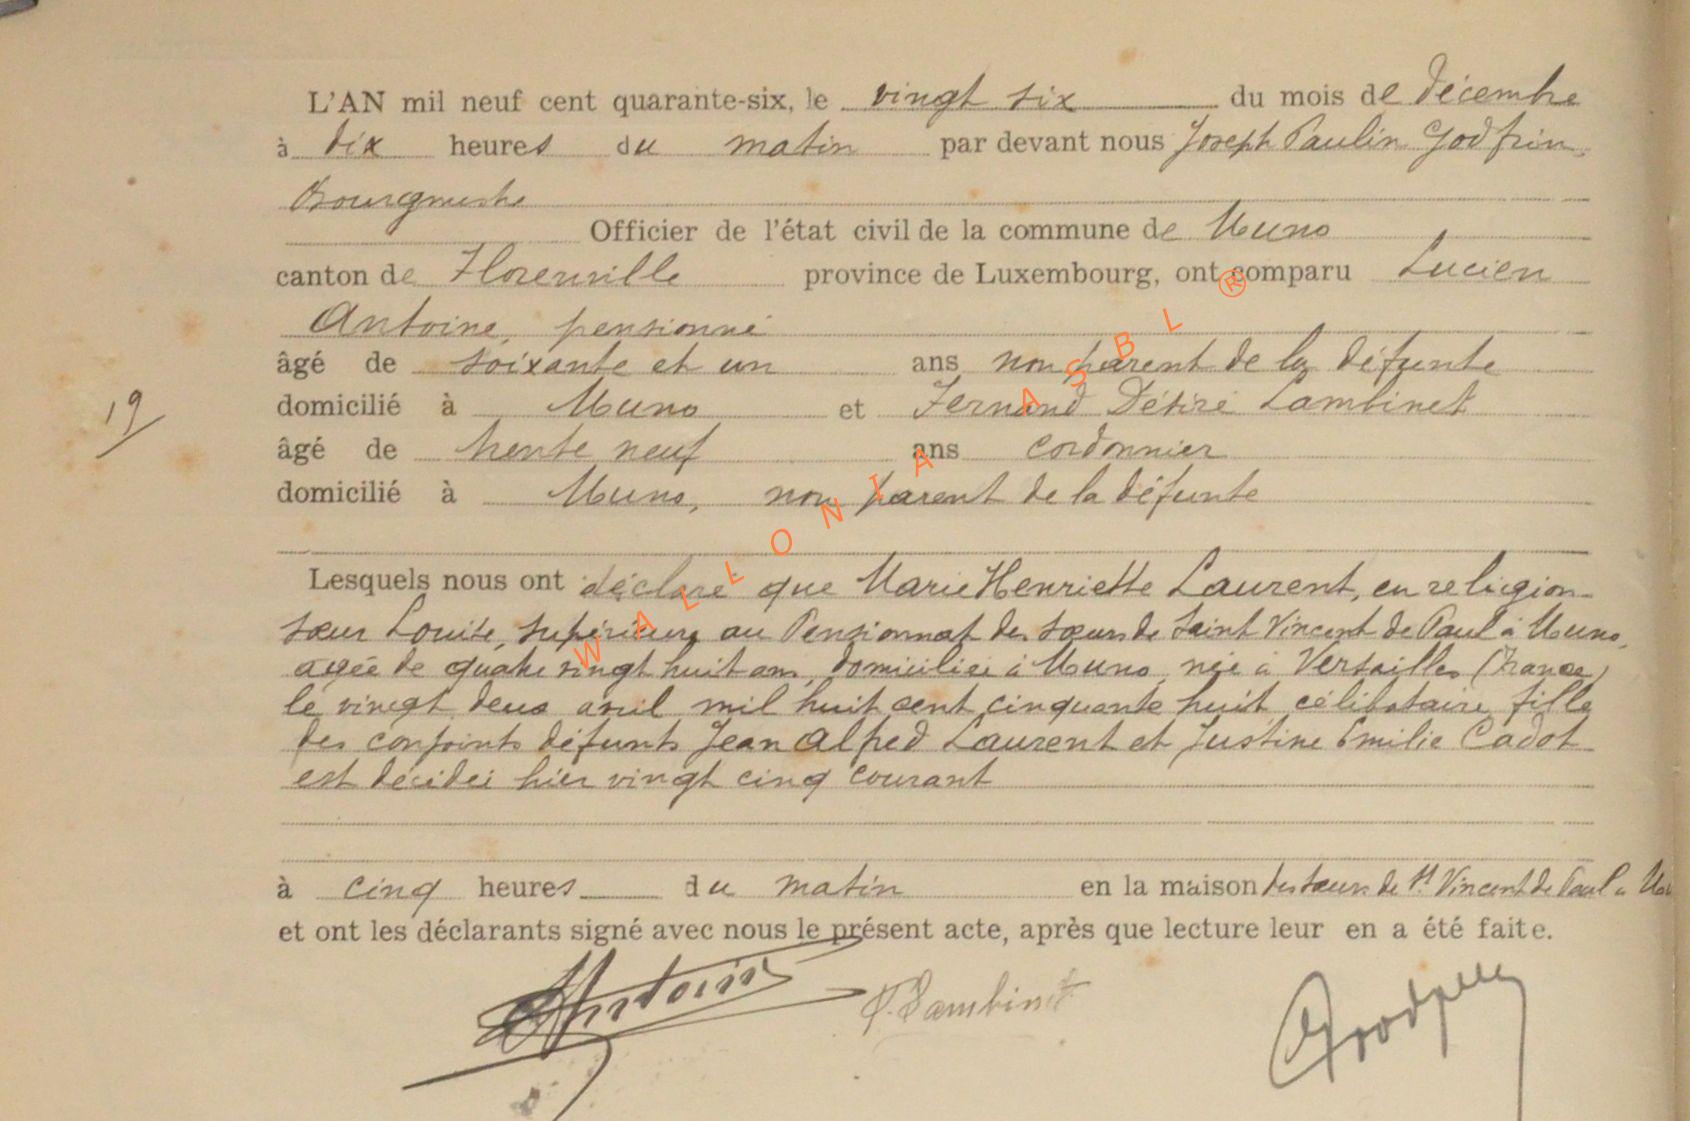 L'AN mil neuf cent quarante-six, le vingt six du mois de Décembre
à dix heures du matin par devant nous Joseph Paulin Godfrin,
Bourgmestre
Officier de l'état civil de la commune de Muno
canton de Florenville province de Luxembourg, ont comparu Lucien
Antoine, pensionné
âgé de soixante et un ans non parent de la défunte
domicilié à Muno et Fernand Désiré Lambinet
âgé de trente neuf ans cordonnier
domicilié à Muno, non parent de la défunte
19
Lesquels nous ont déclaré que Marie Henriette Laurent, en religion
sœur Louise, supérieure au Pensionnat des sœurs de Saint Vincent de Paul à Muno,
agée de quatre vingt huit ans, domiciliée à Muno, née à Versailles (France)
le vingt deux avril mil huit cent cinquante huit, célibataire, fille
des conjoints défunts Jean Alfred Laurent et Justine Emilie Cadot
est décédée hier vingt cinq courant
à cinq heures du matin en la maison des sœurs de St Vincent de Paul à
et ont les déclarants signé avec nous le présent acte, après que lecture leur en a été faite.
Antoine F. Lambinet Godfrin
WALLONIA ASBL ®